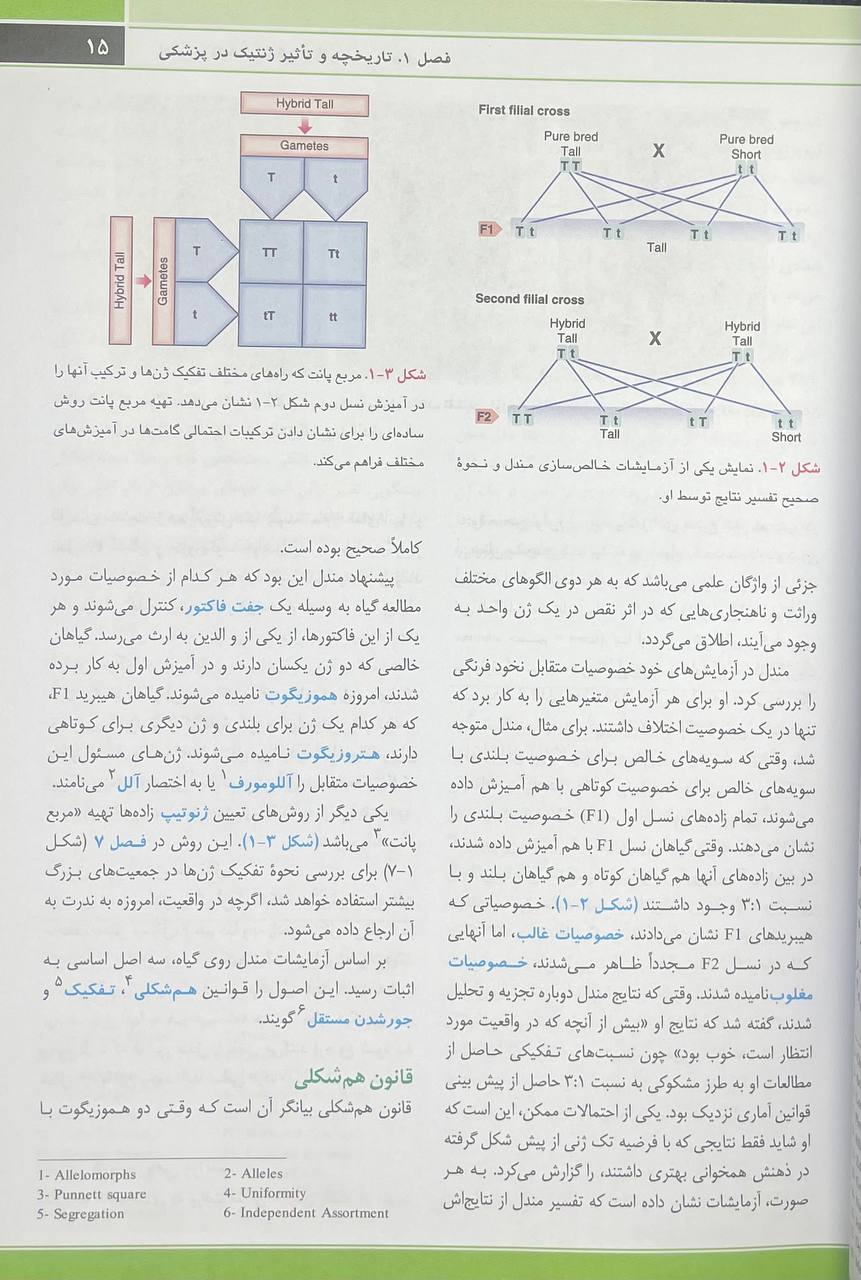 ۱۵
فصل ۱. تاریخچه و تأثیر ژنتیک در پزشکی
First filial cross
Pure bred
Tall
T T
X
Pure bred
Short
t t
F1
T t
T t
T t
T t
Tall
Second filial cross
Hybrid
Tall
T t
X
Hybrid
Tall
T t
F2
T T
T t
t T
t t
Tall
Short
شکل ۲-۱. نمایش یکی از آزمایشات خالص‌سازی مندل و نحوۀ
صحیح تفسیر نتایج توسط او.
جزئی از واژگان علمی می‌باشد که به هر دوی الگوهای مختلف
وراثت و ناهنجاری‌هایی که در اثر نقص در یک ژن واحد به
وجود می‌آیند، اطلاق می‌گردد.
مندل در آزمایش‌های خود خصوصیات متقابل نخود فرنگی
را بررسی کرد. او برای هر آزمایش متغیرهایی را به کار برد که
تنها در یک خصوصیت اختلاف داشتند. برای مثال، مندل متوجه
شد، وقتی که سویه‌های خالص برای خصوصیت بلندی با
سویه‌های خالص برای خصوصیت کوتاهی با هم آمیزش داده
می‌شوند، تمام زاده‌های نسل اول (F1) خصوصیت بلندی را
نشان می‌دهند. وقتی گیاهان نسل F1 با هم آمیزش داده شدند،
در بین زاده‌های آنها هم گیاهان کوتاه و هم گیاهان بلند و با
نسبت ۳:۱ وجود داشتند (شکل ۲-۱). خصوصیاتی که
هیبریدهای F1 نشان می‌دادند، خصوصیات غالب، اما آنهایی
که در نسل F2 مجدداً ظاهر می‌شدند، خصوصیات
مغلوب نامیده شدند. وقتی که نتایج مندل دوباره تجزیه و تحلیل
شدند، گفته شد که نتایج او «بیش از آنچه که در واقعیت مورد
انتظار است، خوب بود» چون نسبت‌های تفکیکی حاصل از
مطالعات او به طرز مشکوکی به نسبت ۳:۱ حاصل از پیش بینی
قوانین آماری نزدیک بود. یکی از احتمالات ممکن، این است که
او شاید فقط نتایجی که با فرضیه تک ژنی از پیش شکل گرفته
در ذهنش همخوانی بهتری داشتند، را گزارش می‌کرد. به هر
صورت، آزمایشات نشان داده است که تفسیر مندل از نتایج‌اش
Hybrid Tall
Gametes
T
t
Hybrid Tall
Gametes
T
TT
Tt
t
tT
tt
شکل ۳-۱. مربع پانت که راه‌های مختلف تفکیک ژن‌ها و ترکیب آنها را
در آمیزش نسل دوم شکل ۲-۱ نشان می‌دهد. تهیه مربع پانت روش
ساده‌ای را برای نشان دادن ترکیبات احتمالی گامت‌ها در آمیزش‌های
مختلف فراهم می‌کند.
کاملاً صحیح بوده است.
پیشنهاد مندل این بود که هر کدام از خصوصیات مورد
مطالعه گیاه به وسیله یک جفت فاکتور، کنترل می‌شوند و هر
یک از این فاکتورها، از یکی از و الدین به ارث می‌رسد. گیاهان
خالصی که دو ژن یکسان دارند و در آمیزش اول به کار برده
شدند، امروزه هموزیگوت نامیده می‌شوند. گیاهان هیبرید F1،
که هر کدام یک ژن برای بلندی و ژن دیگری برای کوتاهی
دارند، هتروزیگوت نامیده می‌شوند. ژن‌های مسئول این
خصوصیات متقابل را آللومورف۱ یا به اختصار آلل۲ می‌نامند.
یکی دیگر از روش‌های تعیین ژنوتیپ زاده‌ها تهیه «مربع
پانت»۳ می‌باشد (شکل ۳-۱). این روش در فصل ۷ (شکل
۷-۱) برای بررسی نحوۀ تفکیک ژن‌ها در جمعیت‌های بزرگ
بیشتر استفاده خواهد شد، اگرچه در واقعیت، امروزه به ندرت به
آن ارجاع داده می‌شود.
بر اساس آزمایشات مندل روی گیاه، سه اصل اساسی به
اثبات رسید. این اصول را قوانین هم‌شکلی۴، تفکیک۵ و
جورشدن مستقل۶ گویند.
قانون هم‌شکلی
قانون هم‌شکلی بیانگر آن است که وقتی دو هموزیگوت با
1- Allelomorphs
2- Alleles
3- Punnett square
4- Uniformity
5- Segregation
6- Independent Assortment